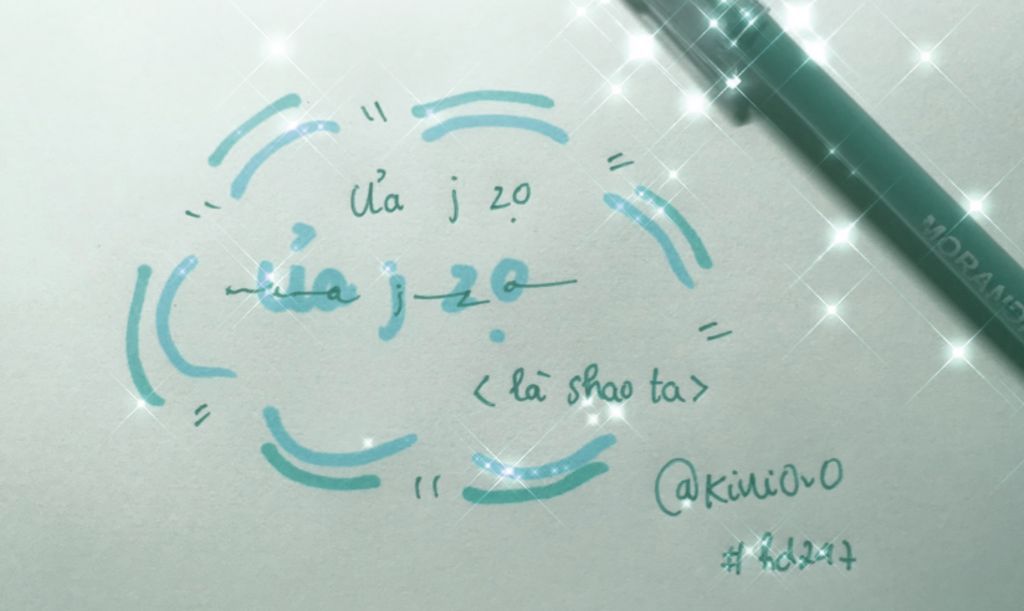 Ưa j zọ
Ưa j zọ
ưa j zọ
< là shao ta >
@KiMiOvO
#hd247
MORANDI